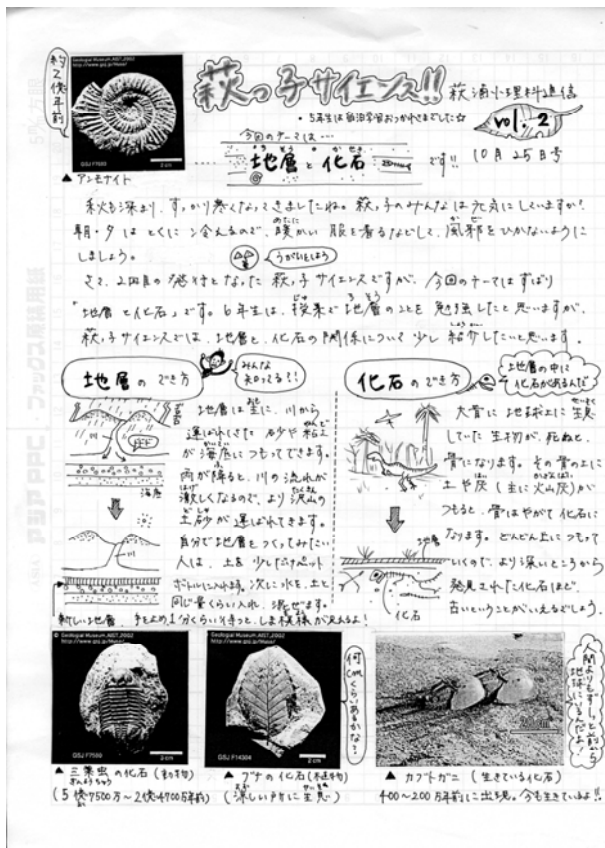 約2億年前
Geological Museum, AIST, 2002
http://www.gsj.jp/Muse/
GSJ F7550
2 cm
▲ アンモナイト
萩っ子サイエンス!!
萩浦小理科通信
vol. 2
10月25日号
・5年生は宿泊学習おつかれさまでした☆
今回のテーマは…
ちそう かせき
地層と化石 です!!
秋も深まり、すっかり寒くなってきましたね。萩っ子のみんなは元気にしていますか?
朝・夕はとくに冷えるので、暖かい服を着るなどして、風邪をひかないように
しましょう。
うがいをしよう
さて、2回目の発行となった萩っ子サイエンスですが、今回のテーマはずばり
「地層と化石」です。6年生は、授業で地層のことを勉強したと思いますが、
萩っ子サイエンスでは、地層と、化石の関係について少し紹介したいと思います。
地層のでき方
みんな
知ってる?!
川
海底
川
新しい地層
地層は主に、川から
運ばれてきた砂や粘土
が海底につもってできます。
雨が降ると、川の流れが
激しくなるので、より沢山の
土砂が運ばれてきます。
自分で地層をつくってみたい
人は、土を少しだけペット
ボトルに入れます。次に水を、土と
同じ量くらい入れ、混ぜます。
手を止め1分くらい待つと、しま模様が見えるよ!
化石のでき方
地層の中に
化石があるんだ
地層
化石
大昔に地球上に生息
していた生物が、死ぬと、
骨になります。その骨の上に
土や灰(主に火山灰)が
つもると、骨はやがて化石に
なります。どんどん上につもって
いくので、より深いところから
発見された化石ほど、
古いということがいえるでしょう。
© Geological Museum, AIST, 2002
http://www.gsj.jp/Muse/
GSJ F7550
2 cm
▲ 三葉虫の化石(動物)
さんようちゅう
(5億7500万~2億4700万年前)
© Geological Museum, AIST, 2002
http://www.gsj.jp/Muse/
GSJ F14304
2 cm
何cmくらいあるかな?
▲ ブナの化石(植物)
(涼しい所に生息)
20cm
人間よりもずーっと前から
地球にいるんだよ!
▲ カブトガニ(生きている化石)
400~200万年前に出現。今も生きているよ!!
アジア PPC・ファックス原稿用紙